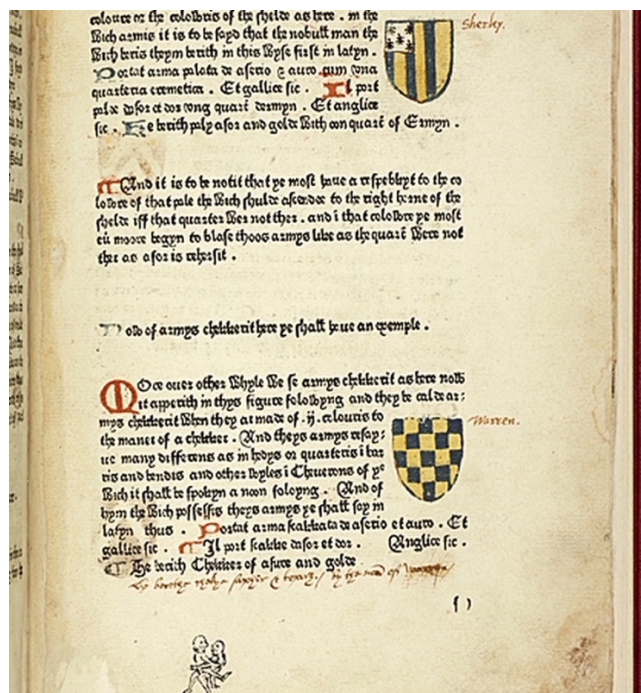 coloure or the colowris of the shelde as here . in the
Wich armis it is to be sayd that the nobull man the
Wich beris theym berith in this Wyse first in latyn .
Portat arma palata de aserio & auro cum una
quarteria eremetica . Et gallice sic . Il port
pale dasor et dor ung quarē dermyn . Et anglice
sic . He berith paly asor and golde With oon quarē of Ermyn .
Sherley.
And it is to be notit that ye most haue a respebbyt to the co
lowre of that pale the Wich shulde ascende to the right horne of the
shelde iff that quarter Wer not ther . and ī that colowre ye most
eū moore begyn to blase thoos armys like as the quarē Were not
ther as afor is rehersit .
Now of armys chekkerit here ye shall haue an exemple .
Moore ouer other Whyle We se armys chekkerit as here now
it apperith in thys figure folowyng and they be calde ar:
mys chekkerit When they ar made of .ij. colouris to
the maner of a chekker . And theys armys resay:
ue many differens as in hedys or quarteris ī bar
ris and bendis and other Wyles ī Cheuerons of ye
Wich it shall be spokyn a noon foloyng . And of
hym the Wich possessis theys armys ye shall say in
latyn thus . Portat arma scakkata de aserio et auro . Et
gallice sic . Il port scakke dasor et dor . Anglice sic .
He berith Chekker of asure and golde
Warren.